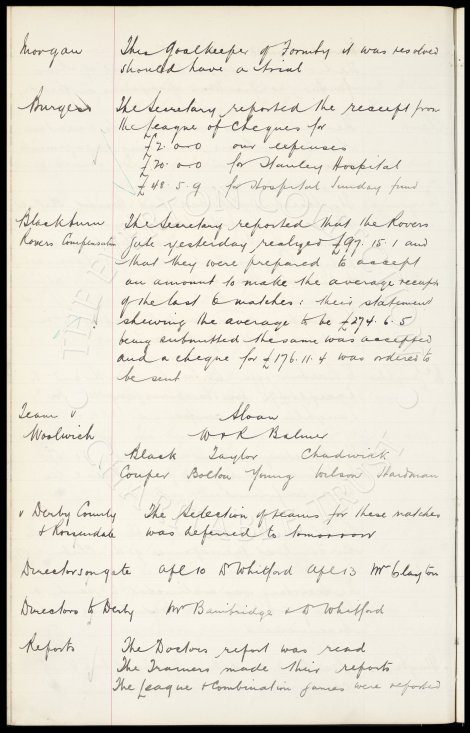 Morgan The Goalkeeper of Formby it was resolved
should have a trial
Burgess The Secretary reported the receipt from
the League of Cheques for
£2.0.0 our expenses
£20.0.0 for Stanley Hospital
£48.5.9 for Hospital Sunday fund
Blackburn The Secretary reported that the Rovers
Rovers Compensation Gate yesterday realized £97.15.1 and
that they were prepared to accept
an amount to make the average receipts
of the last 6 matches: their statement
shewing the average to be £274.6.5
being submitted the same was accepted
and a cheque for £176.11.4 was ordered to
be sent
Team v Sloan
Woolwich W & R Balmer
Black Taylor Chadwick
Couper Bolton Young Wilson Hardman
v Derby County The Selection of teams for these matches
& Rossendale was deferred to tomorrow
Directors on gate Apl 10 Dr Whitford Apl 13 Mr Clayton
Directors to Derby Mr Bainbridge & Dr Whitford
Reports The Doctors report was read
The Trainers made their reports
The League & Combination games were reported
THE EVERTON COLLECTION
CHARITABLE TRUST